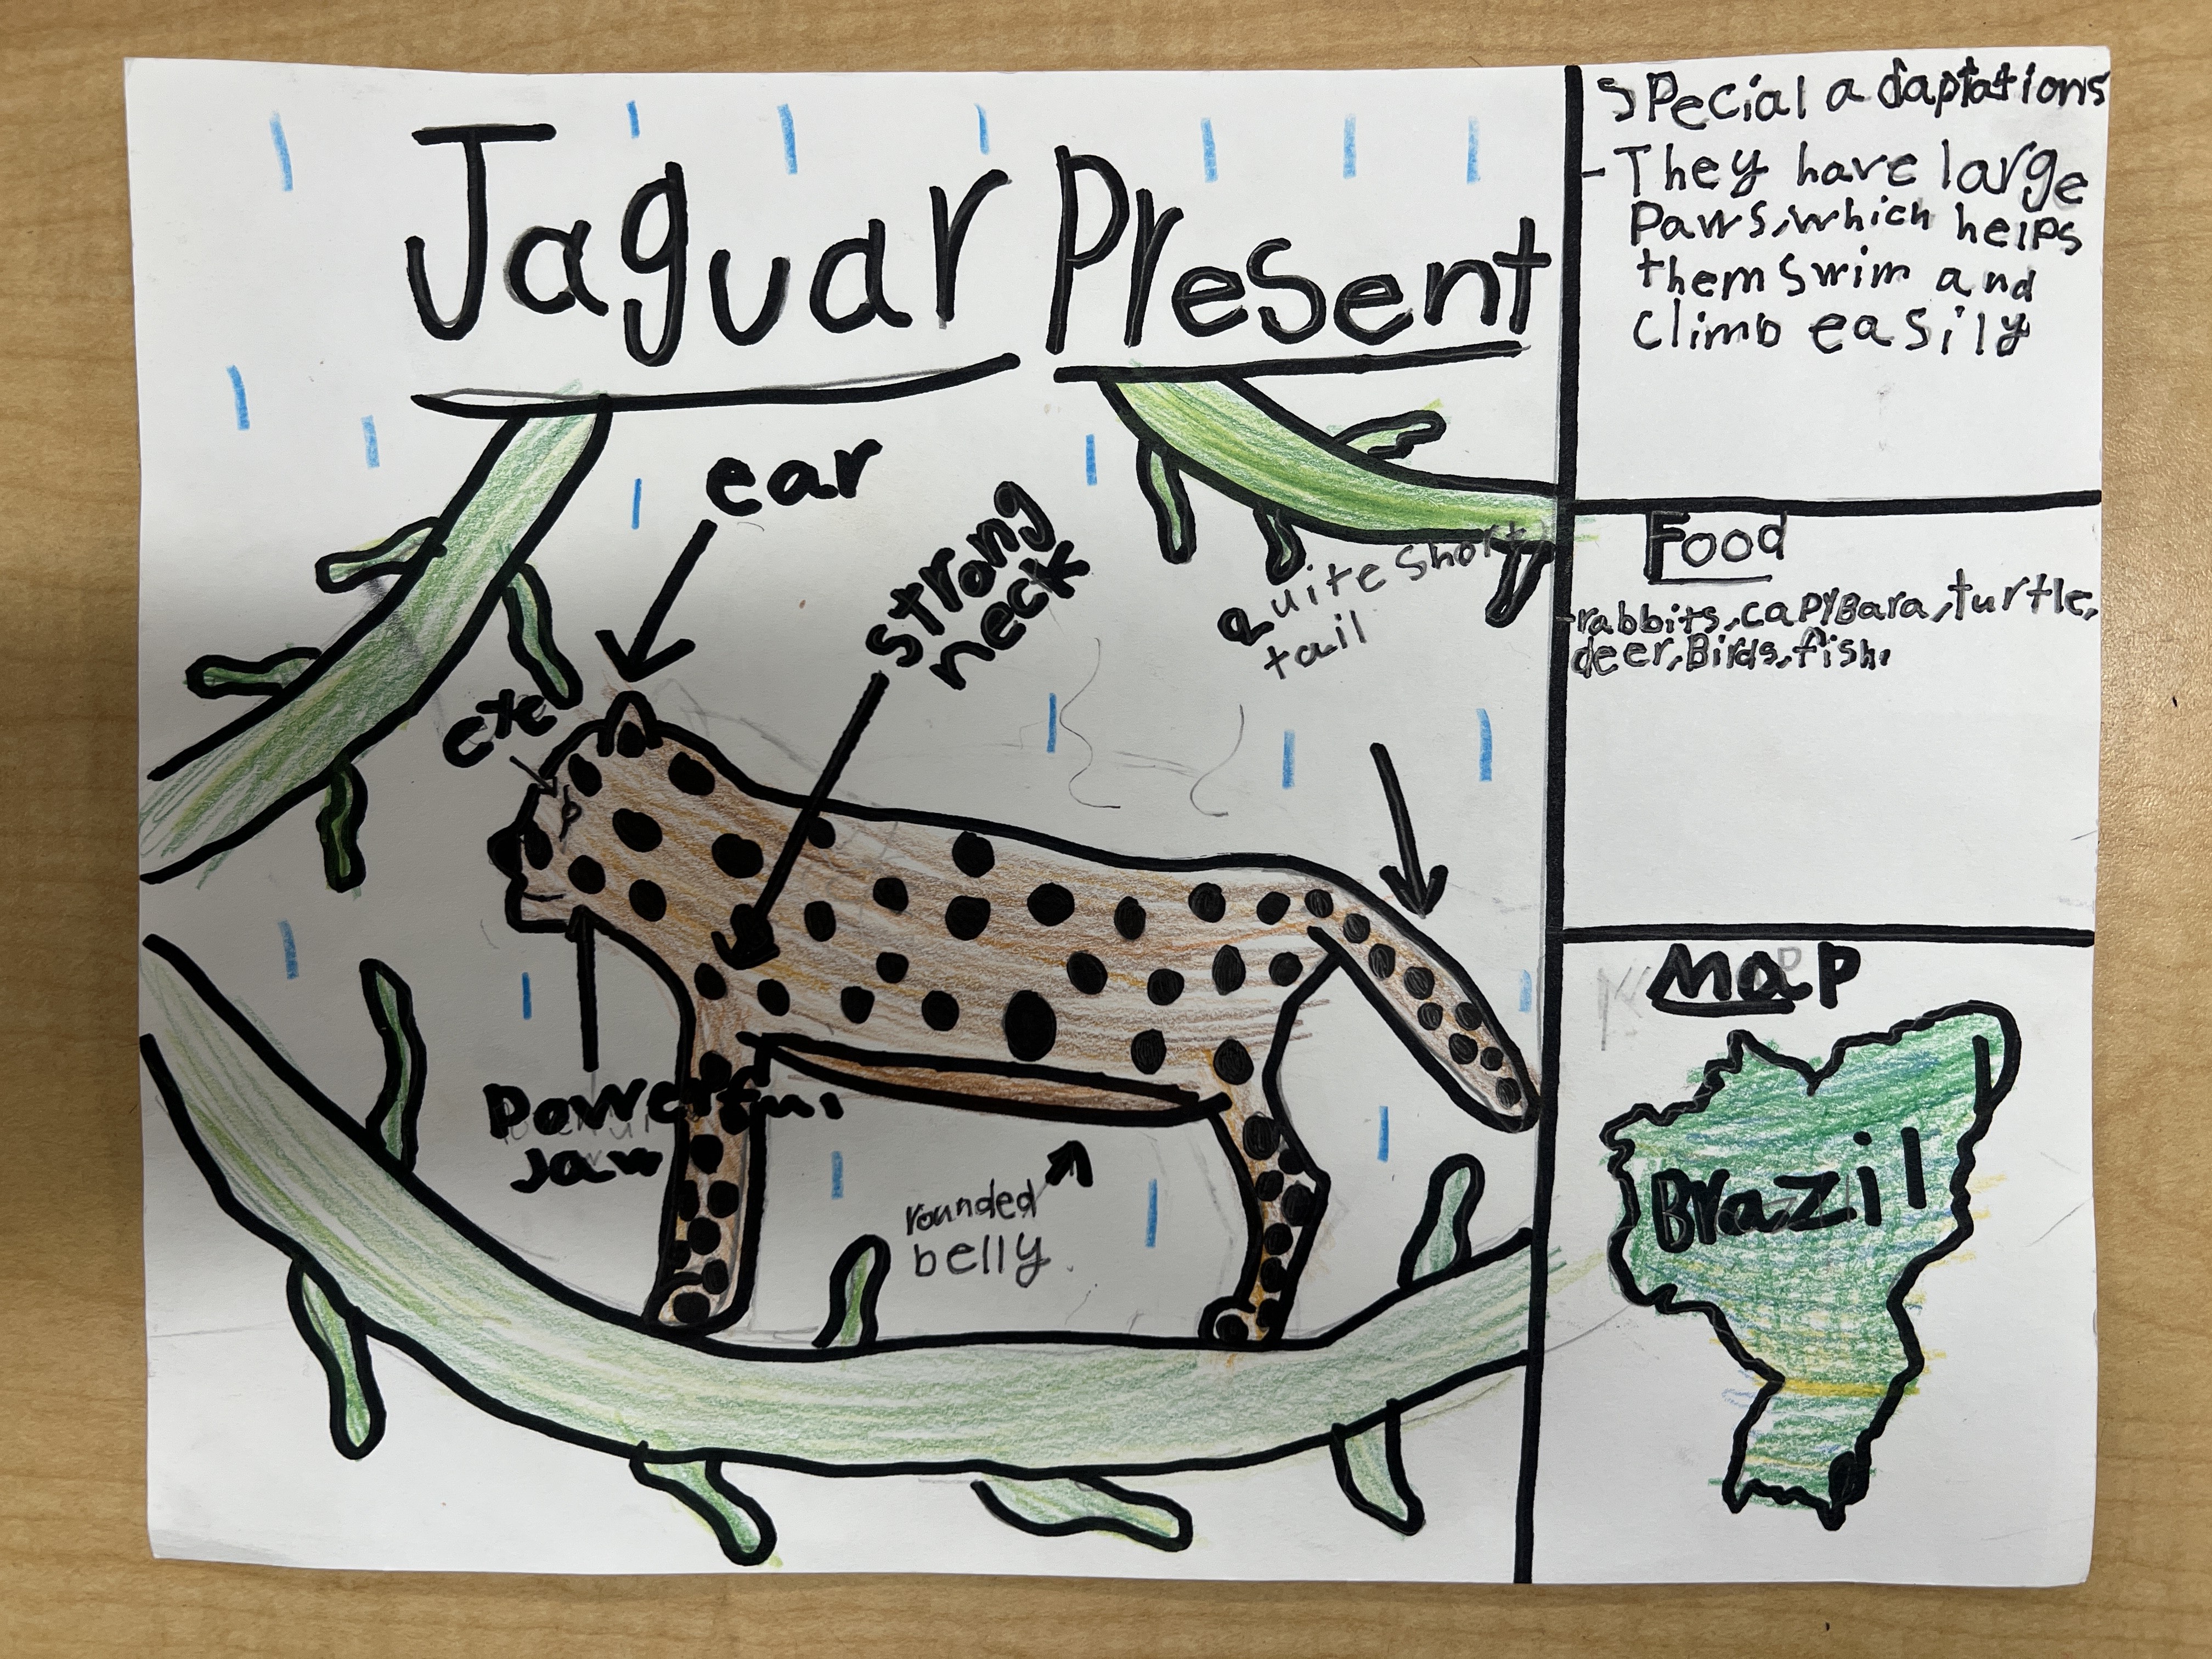 Jaguar Present
ear
strong
neck
Quite short
tail
eye
Powerful
Jaw
rounded
belly
Special adaptations
- They have large
Paws, which helps
them swim and
climb easily
Food
-rabbits, capyBara, turtle,
deer, Birds, fish.
Map
Brazil